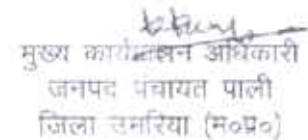 मुख्य कार्यपालन अधिकारी
जनपद पंचायत पाली
जिला उमरिया (म०प्र०)